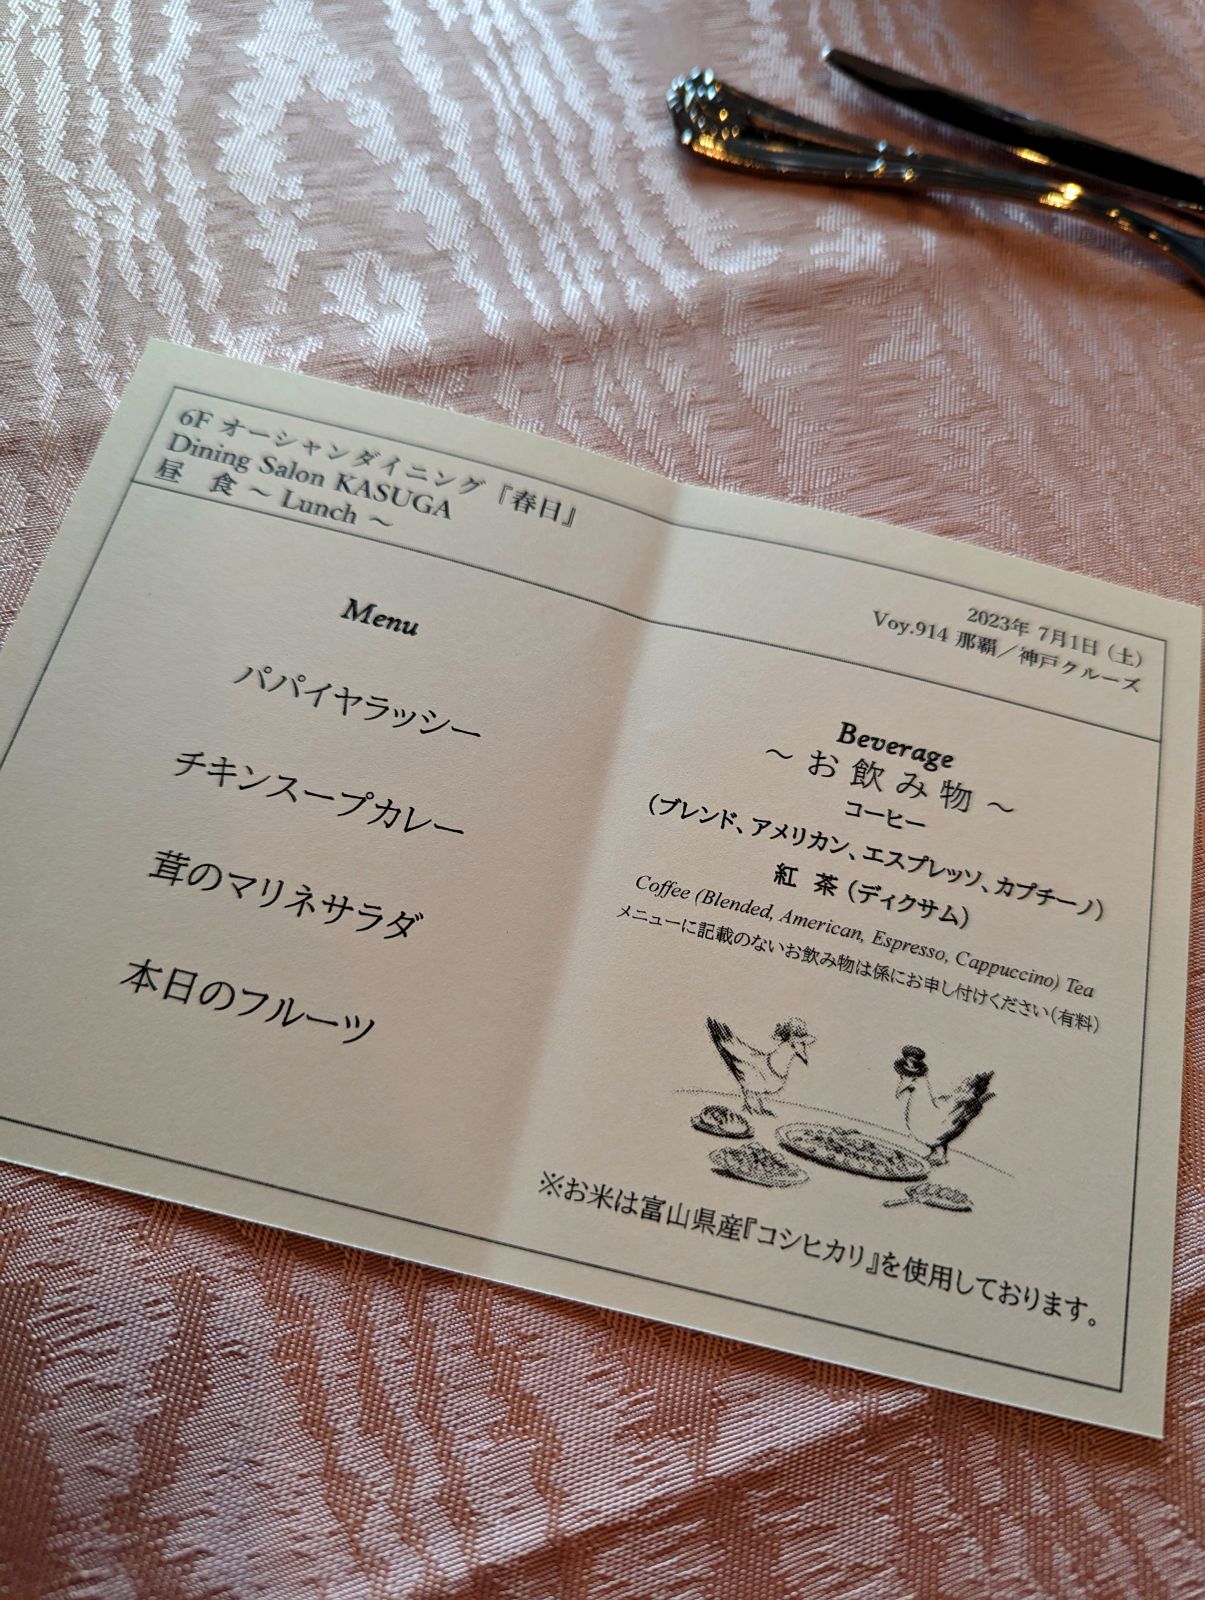 6F オーシャンダイニング『春日』
Dining Salon KASUGA
昼 食 ～ Lunch ～
2023年 7月1日（土）
Voy.914 那覇／神戸クルーズ
Menu
パパイヤラッシー
チキンスープカレー
茸のマリネサラダ
本日のフルーツ
Beverage
～ お 飲 み 物 ～
コーヒー
（ブレンド、アメリカン、エスプレッソ、カプチーノ）
紅 茶（ディクサム）
Coffee (Blended, American, Espresso, Cappuccino) Tea
メニューに記載のないお飲み物は係にお申し付けください（有料）
※お米は富山県産『コシヒカリ』を使用しております。